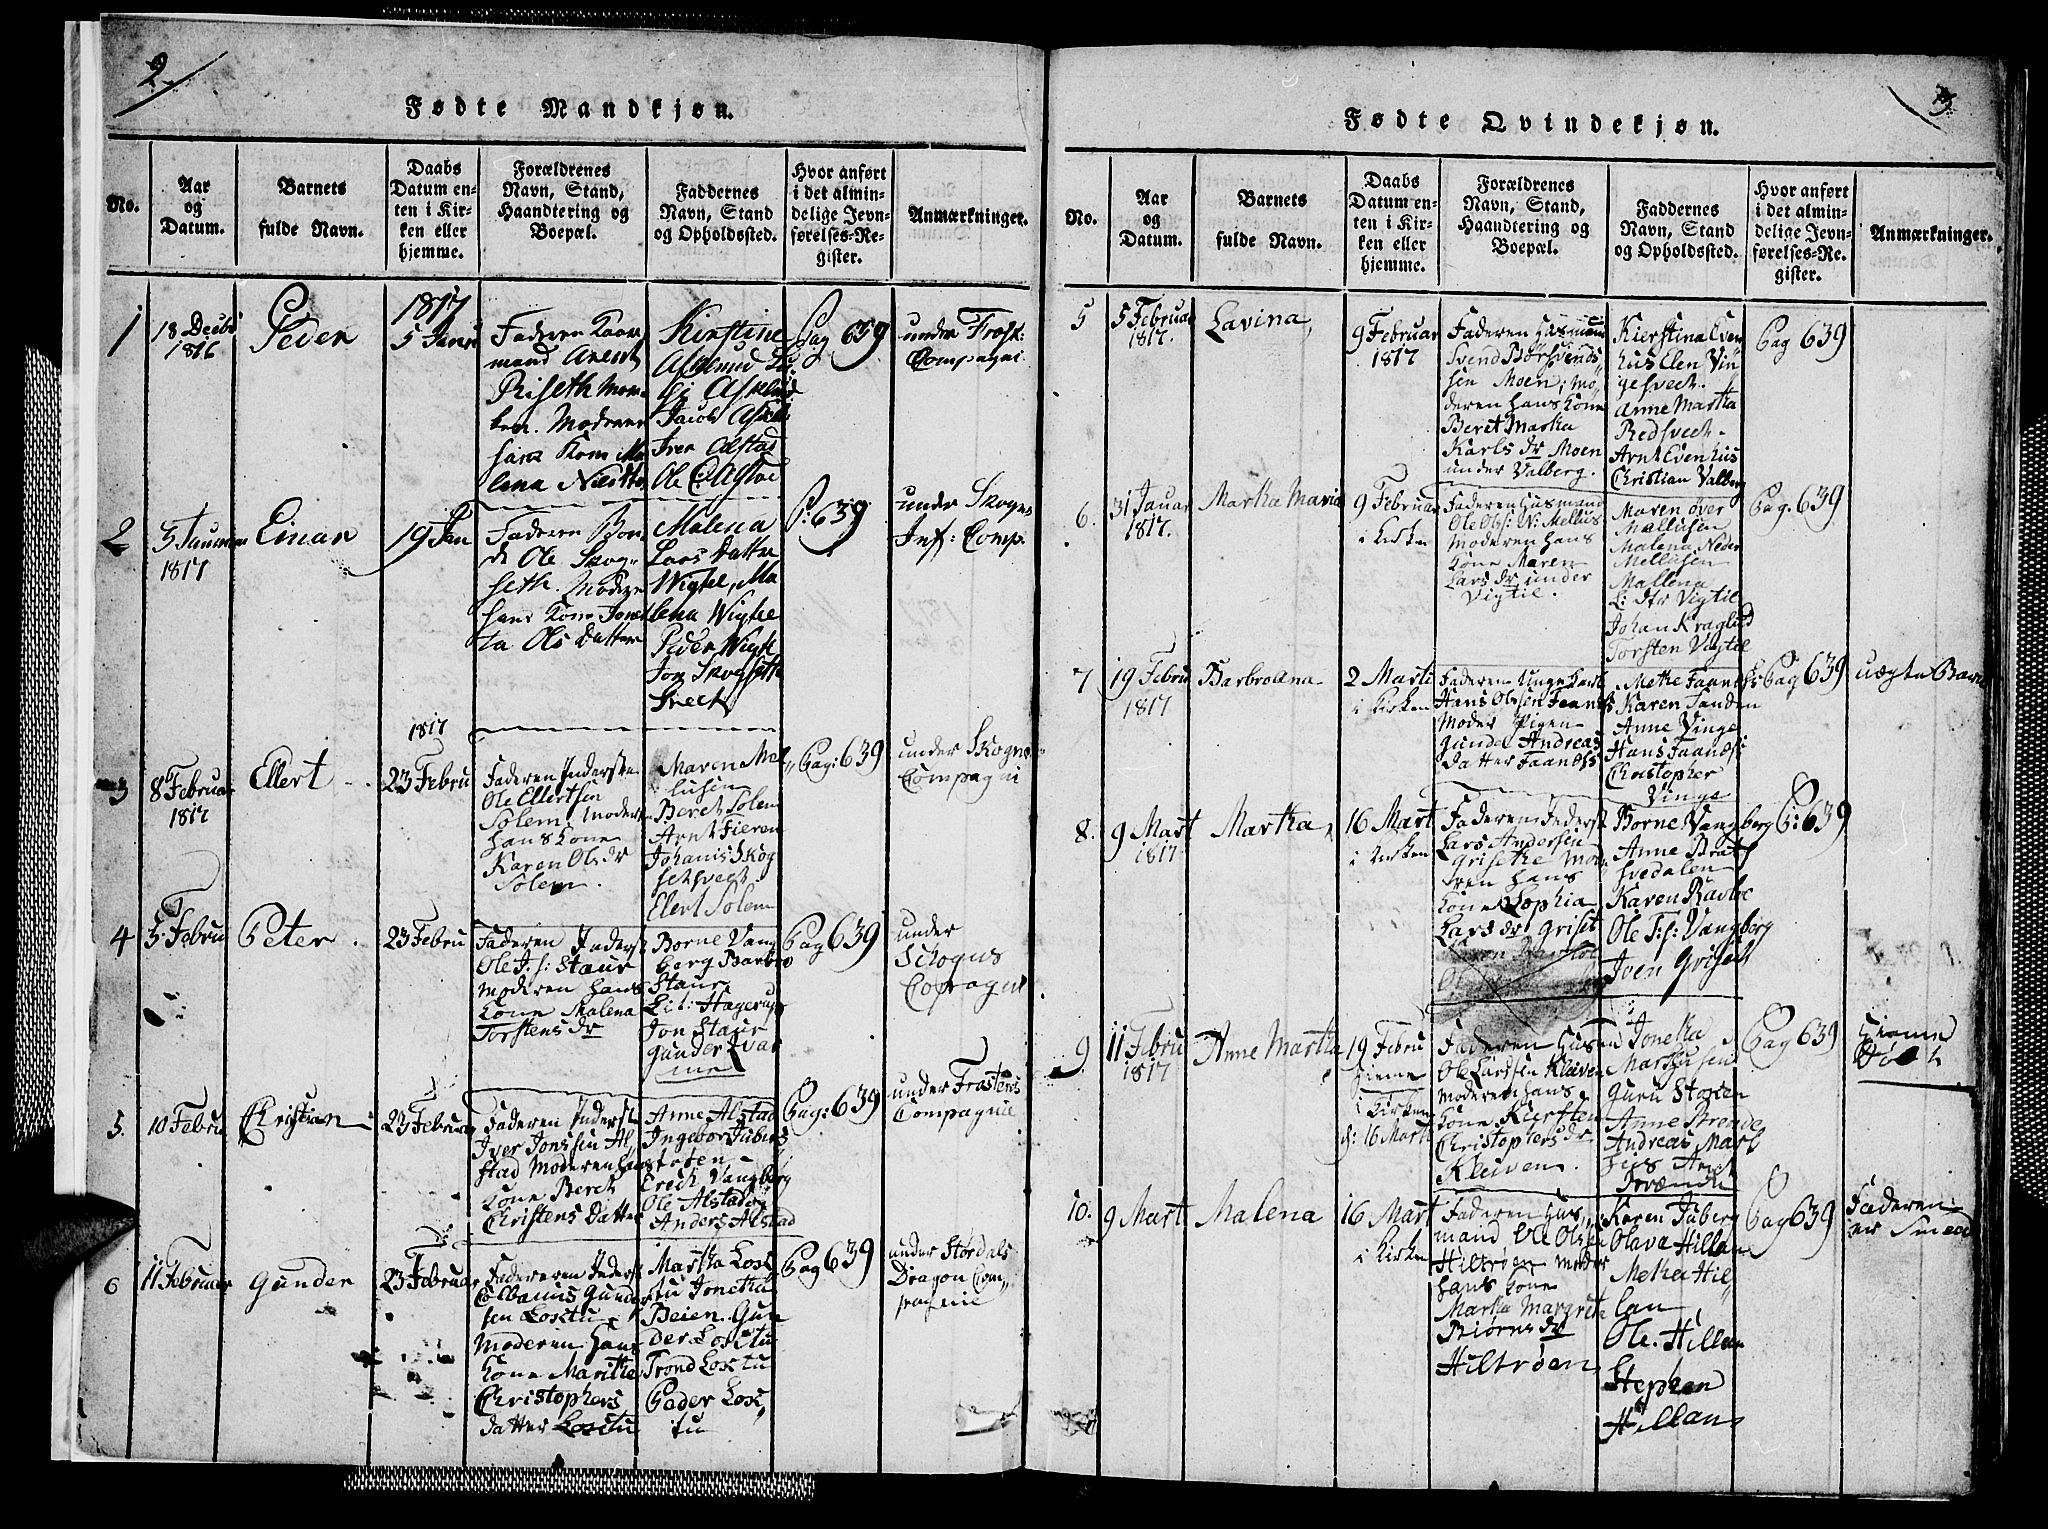 2
Fødte Mandkjøn.
No.
Aar
og
Datum.
Barnets
fulde Navn.
Daabs
Datum en-
ten i Kir-
ken eller
hjemme.
Forældrenes
Navn, Stand,
Haandtering og
Boepæl.
Faddernes
Navn, Stand
og Opholdssted.
Hvor anført
i det almin-
delige Jevn-
førelses-Re-
gister.
Anmærkninger.
1
18 Decbr
1816
Peder
1817
5 Janr
Faderen
mand Arent
Riseth
Moderen
hans Kone Ma
lena
Kirstine
Jacob
Iver Alstad
Ole
Pag 639
under Frost:
Compagni
2
1817
Einar
19 Jan
Faderen Bon
d Ole Skog-
seth. Moder
hans Kone
ta Ols Datter
Malena
Lars Datter
Wigtil, Ma
lena Wigtil
Peder Wigtil
Jon Skogseth
P: 639
under Skogns
Inf: Comp.
1817
3
8 Februar
1817
Ellert
23 Febru
Faderen Inderste
Ole Ellertsen
Solem, Moder
hans Kone
Karen Ols dr
Solem.
Maren Mel
lusen
Beret Solem
Arnt Fieren
Johanis Skog
setsvect
Elert Solem
Pag: 639
under Skogns
Compagni
4
3 Febru
Peter.
23 Febru
Faderen Inderst
Ole J. s: Staur
Moderen hans
Kone Malena
Torstens dr
Borne Vang
berg Barbro
Staur
Lit: Hagerup
Jon Staur
Gunder Kvar
me
Pag 639
under
Skogns
5.
10 Febru
Christian
23 Februar
Faderen Inderst
Iver Jonssen Al
stad Moderen hans
Kone Beret
Christens Datter
Anne Alstad
Ingebor Juberg
Erick Vangberg
Ole Alstad og
Anders Alstad
Pag: 639
under Frostens
Compagnie
6
11 Februar
Gunder
23 Februar
Faderen Inderst
Gunder
sen Loxtu
Moderen hans
Kone Maritte
Christophers
datter Loxtu
Martha Lox
tu Jonetha
Beien. Gun
der Loxtu
Trond Loxtu
Peder Lox
tu
Pag 639
under Størdals
Dragon Com
pagnie
3
Fødte Qvindekjøn.
No.
Aar
og
Datum.
Barnets
fulde Navn.
Daabs
Datum en-
ten i Kir-
ken eller
hjemme.
Forældrenes
Navn, Stand,
Haandtering og
Boepæl.
Faddernes
Navn, Stand
og Opholdssted.
Hvor anført
i det almin-
delige Jevn-
førelses-Re-
gister.
Anmærkninger.
5
5 Februar
1817.
Lavina
9 Februar
1817
Faderen Husmand
Svend Børsvends
sen Moen; Mo
deren hans Kone
Beret Marta
Karls dr Moen
under Valberg.
Kierstina Even
hus Elen Vin
gesvect.
Anne Martha
Redsvect
Arnt Evenhus
Christian Valberg
Pag 639
6.
31 Januar
1817.
Martha Maria
9 Februar
i Kirken
Faderen Husmand
Ole Ols: N: Mellus
Moderen hans
Kone Maren
Lars dr under
Vigtil.
Maren øver
Mallusen
Malena Neder
Mellusen
Mallena
L: dtr Vigtil
Johan Kraglund
Torsten Vigtil
Pag. 639
7
19 Febru
1817
Barbrolena
2 Marti
i Kirken
Faderen Unge Karl
Hans Olssen Faanes
Moder Pigen
Gundel Andreas
datter Faanes
Methe Faanes
Karen Tanden
Anne Vinge
Hans Faanes
Christopher
Vinge
Pag 639
uægte Barn
8.
9 Mart
1817
Martha
16 Mart
i Kirken
Faderen Inderst
Lars Anderssen
Grisethe Mod
ren hans
Kone Sophia
Lars dr Griset
Borne Vangberg
Anne Brat
svedalen
Karen Ravlo
Ole T: s: Vangberg
Iven Griset
P: 639
9.
11 Febru
1817
Anne Martha
19 Febru
Hieme
i Kirken
d: 16 Marti
Faderen Husm
Ole Larssen Kleiven
Moderen hans
Kone Kiersten
Christophers dr
Kleiven.
Jonetha
Markhusen
Guru Stosten
Anne Brende
Andreas Mark
hus Arnt
Pag 639
Hieme
Døbt
10.
9 Mart
Malena
16 Mart
i Kirken
Faderen Hus
mand Ole Olsen
Hiltrøen Moder
hans Kone
Martha Margreta
Biørns dr
Hiltrøen
Karen Juberg
Olava Hillan
Methe Hil
lan
Ole. Hillan
Stephen
Hillan
Pag 639
Faderen
er Smed